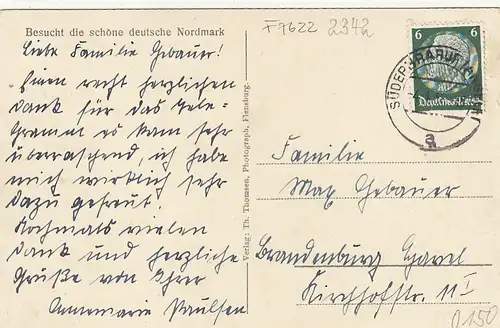 Besucht die schöne deutsche Nordmark
Liebe Familie Gebauer!
Einen recht herzlichen
Dank für das Tele-
gramm es kam sehr
überraschend, ich habe
mich wirklich sehr
dazu gefreut.
Nochmals vielen
Dank und herzliche
Grüße von Ihrer
Annemarie Paulsen
Verlag: Th. Thomsen, Photograph, Flensburg.
F7622 2342
6 6
Deutsches Reich
SÜDERBRARUP
a
Familie
Max Gebauer
Brandenburg Havel
Kirchhofstr. 11 I
0150